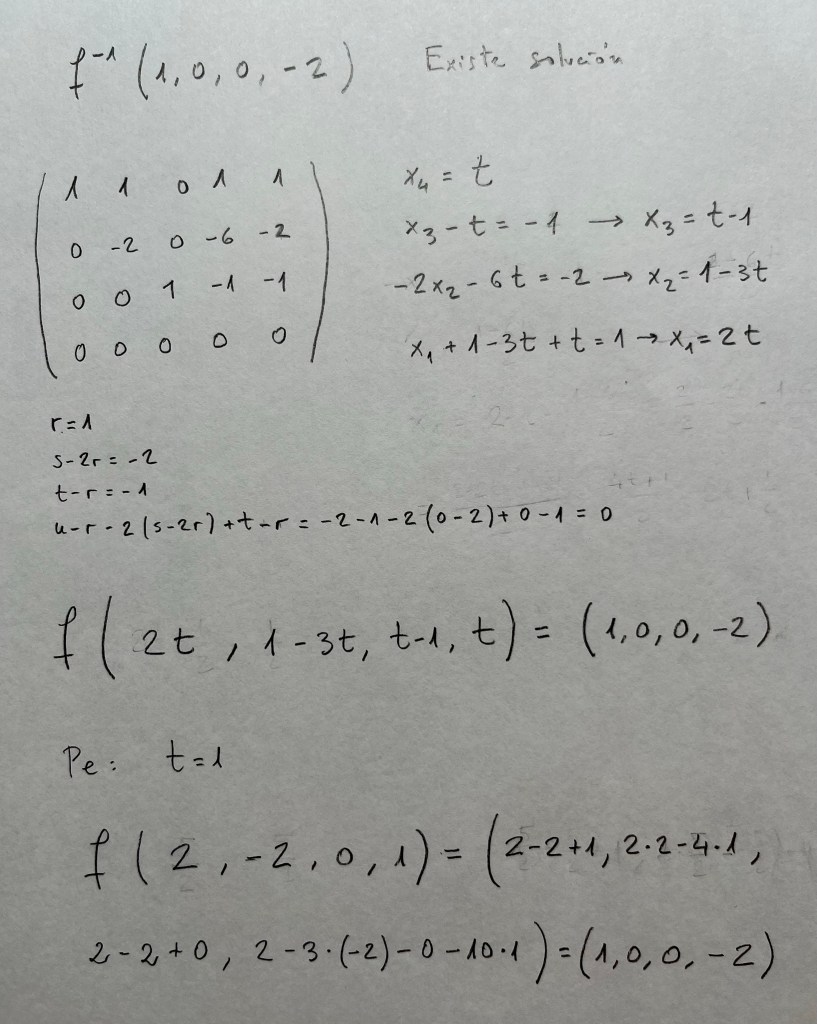 f⁻¹ (1, 0, 0, -2) Existe solución
1 1 0 1 1
0 -2 0 -6 -2
0 0 1 -1 -1
0 0 0 0 0
x₄ = t
x₃ - t = -1 → x₃ = t-1
-2x₂ - 6t = -2 → x₂ = 1-3t
x₁ + 1-3t + t = 1 → x₁ = 2t
r = 1
s-2r = -2
t-r = -1
u-r-2(s-2r)+t-r = -2-1-2(0-2)+0-1 = 0
f(2t, 1-3t, t-1, t) = (1,0,0,-2)
Pe: t=1
f(2, -2, 0, 1) = (2-2+1, 2·2-4·1,
2-2+0, 2-3·(-2)-0-10·1) = (1,0,0,-2)